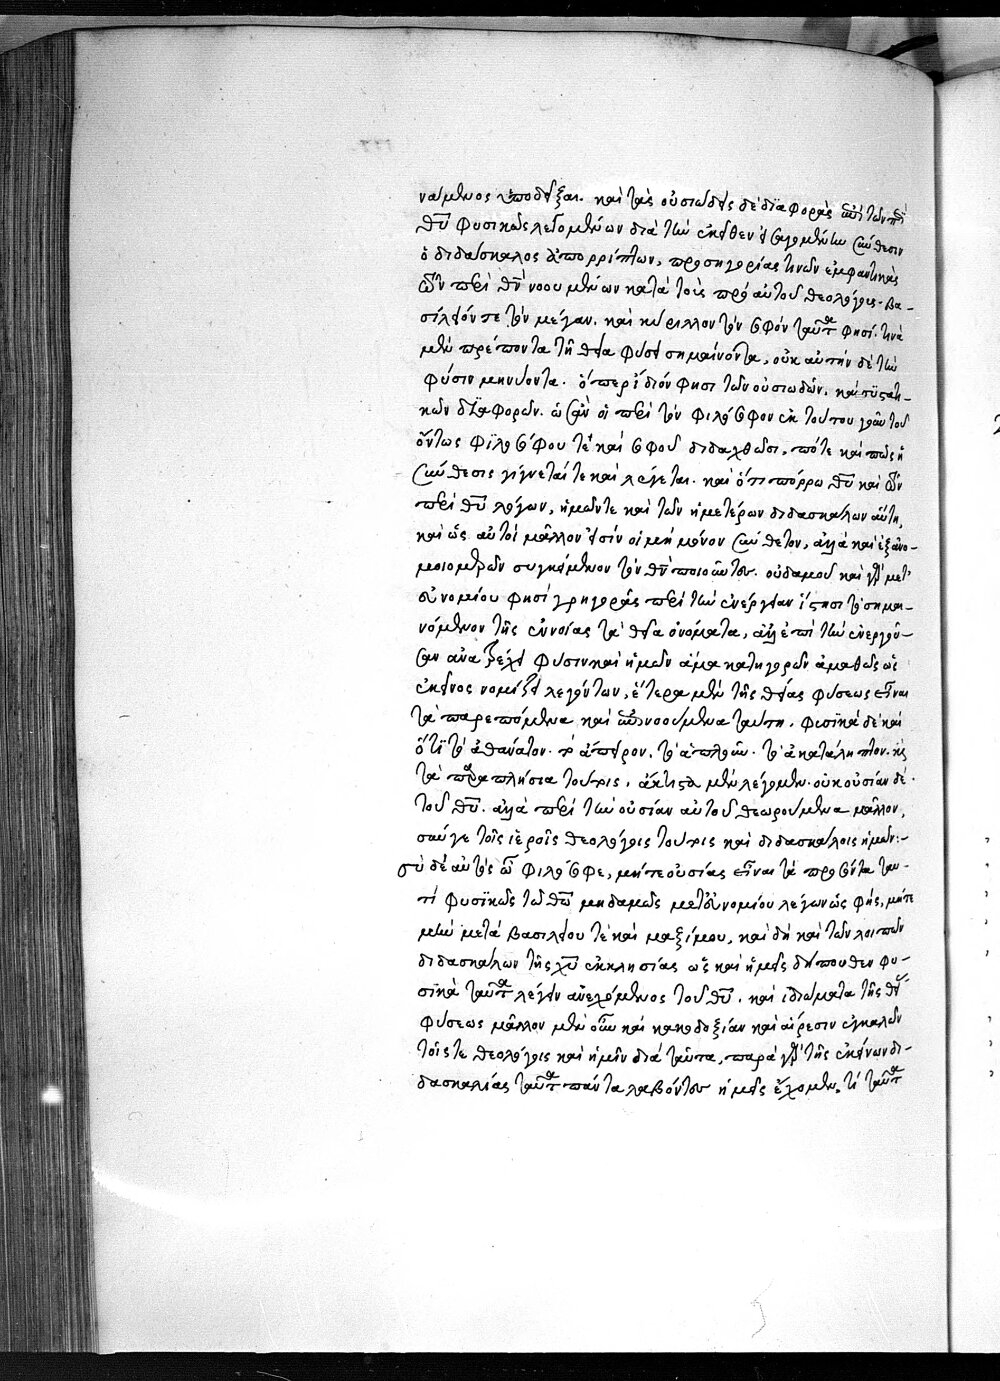 νάμενος ὑποδεῖξαι. καὶ τὰς οὐσιώδεις δὲ διαφορὰς ἐπὶ τῶν περὶ
θυ φυσικῶς λεγομένων διὰ τὴν ἐκεῖθεν εἰσαγομένην σύνθεσιν
ὁ διδάσκαλος ἀπορρίπτων, προσηγορίας τινῶν ἐμφαντικὰς
τῶν περὶ θν νοουμένων κατὰ τοὺς πρὸ αὐτοῦ θεολόγους. βα-
σίλειόν τε τὸν μέγαν. καὶ κύριλλον τὸν σοφὸν ταῦτα φησί. τινὰ
μὲν πρέποντα τῆ θεία φύσει σημαίνοντα, οὐκ αὐτὴν δὲ τὴν
φύσιν μηνύοντα. ὅπερ ἴδιόν φησι τῶν οὐσιωδῶν. καὶ συστατι-
κῶν διαφορῶν. ὡσὰν οἱ περὶ τὸν φιλόσοφον ἐκ τούτου γοῦν τοῦ
ὄντως φιλοσόφου τὲ καὶ σοφοῦ διδαχθῶσι, πότε καὶ πῶς ἡ
σύνθεσις γίγνεταί τε καὶ λέγεται. καὶ ὅτι πόρρω θυ καὶ τῶν
περὶ θυ λόγων, ἡμῶν τε καὶ τῶν ἡμετέρων διδασκάλων αὕτη,
καὶ ὡς αὐτοὶ μᾶλλον εἰσὶν οἱ μὴ μόνον σύνθετον, ἀλλὰ καὶ ἐξ ἀνο-
μοιομερῶν συγκείμενον τὸν θν ποιοῦντες. οὐδαμοῦ καὶ γὰρ μετ'
εὐνομίου φησὶ γρηγορᾶς περὶ τὴν ἐνέργειαν ἵστησι τὸ σημαι-
νόμενον τῆς ἐννοίας τὰ θεῖα ὀνόματα, ἀλλ' ἐπὶ τὴν ἐνεργοῦ-
σαν ἀνατρέχει φύσιν καὶ ἡμῶν ἅμα κατηγορῶν ἀμαθῶς ὡς
ἐκεῖνος νομίζει λεγόντων, ἕτερα μὲν τῆς θείας φύσεως εἶναι
τὰ παρεπόμενα καὶ ἐπινοούμενα ταύτη. φυσικὰ δὲ καὶ
ὅτι τὸ ἀθάνατον. τὸ ἄπειρον. τὸ ἁπλοῦν. τὸ ἀκατάληπτον. καὶ
τὰ παραπλήσια τούτοις, ἄκτιστα μὲν λέγομεν. οὐκ οὐσίαν δὲ
τοῦ θυ. ἀλλὰ περὶ τὴν οὐσίαν αὐτοῦ θεωρούμενα μᾶλλον,
σύν γε τοῖς ἱεροῖς θεολόγοις τούτοις καὶ διδασκάλοις ἡμῶν:-
σὺ δὲ αὐτὸς ὦ φιλόσοφε, μήτε οὐσίας εἶναι τὰ προσόντα ταυ-
τὶ φυσικῶς τῶ θω μηδαμῶς μετ' εὐνομίου λέγων ὡς φής, μήτε
μὴν μετὰ βασιλείου τὲ καὶ μαξίμου, καὶ δὴ καὶ τῶν λοιπῶν
διδασκάλων τῆς χυ ἐκκλησίας ὡς καὶ ἡμεῖς δήπουθεν φυ-
σικὰ ταῦτα λέγειν ἀνεχόμενος τοῦ θυ. καὶ ἰδιώματα τῆς θείας
φύσεως μᾶλλον μὲν οὖν καὶ κακοδοξίαν καὶ αἵρεσιν ἐγκαλῶν
τοῖς τε θεολόγοις καὶ ἡμῖν διὰ ταῦτα, παρὰ γὰρ τῆς ἐκείνων δι-
δασκαλίας ταῦτα πάντα λαβόντες ἡμεῖς ἔχομεν, τί ταῦτα